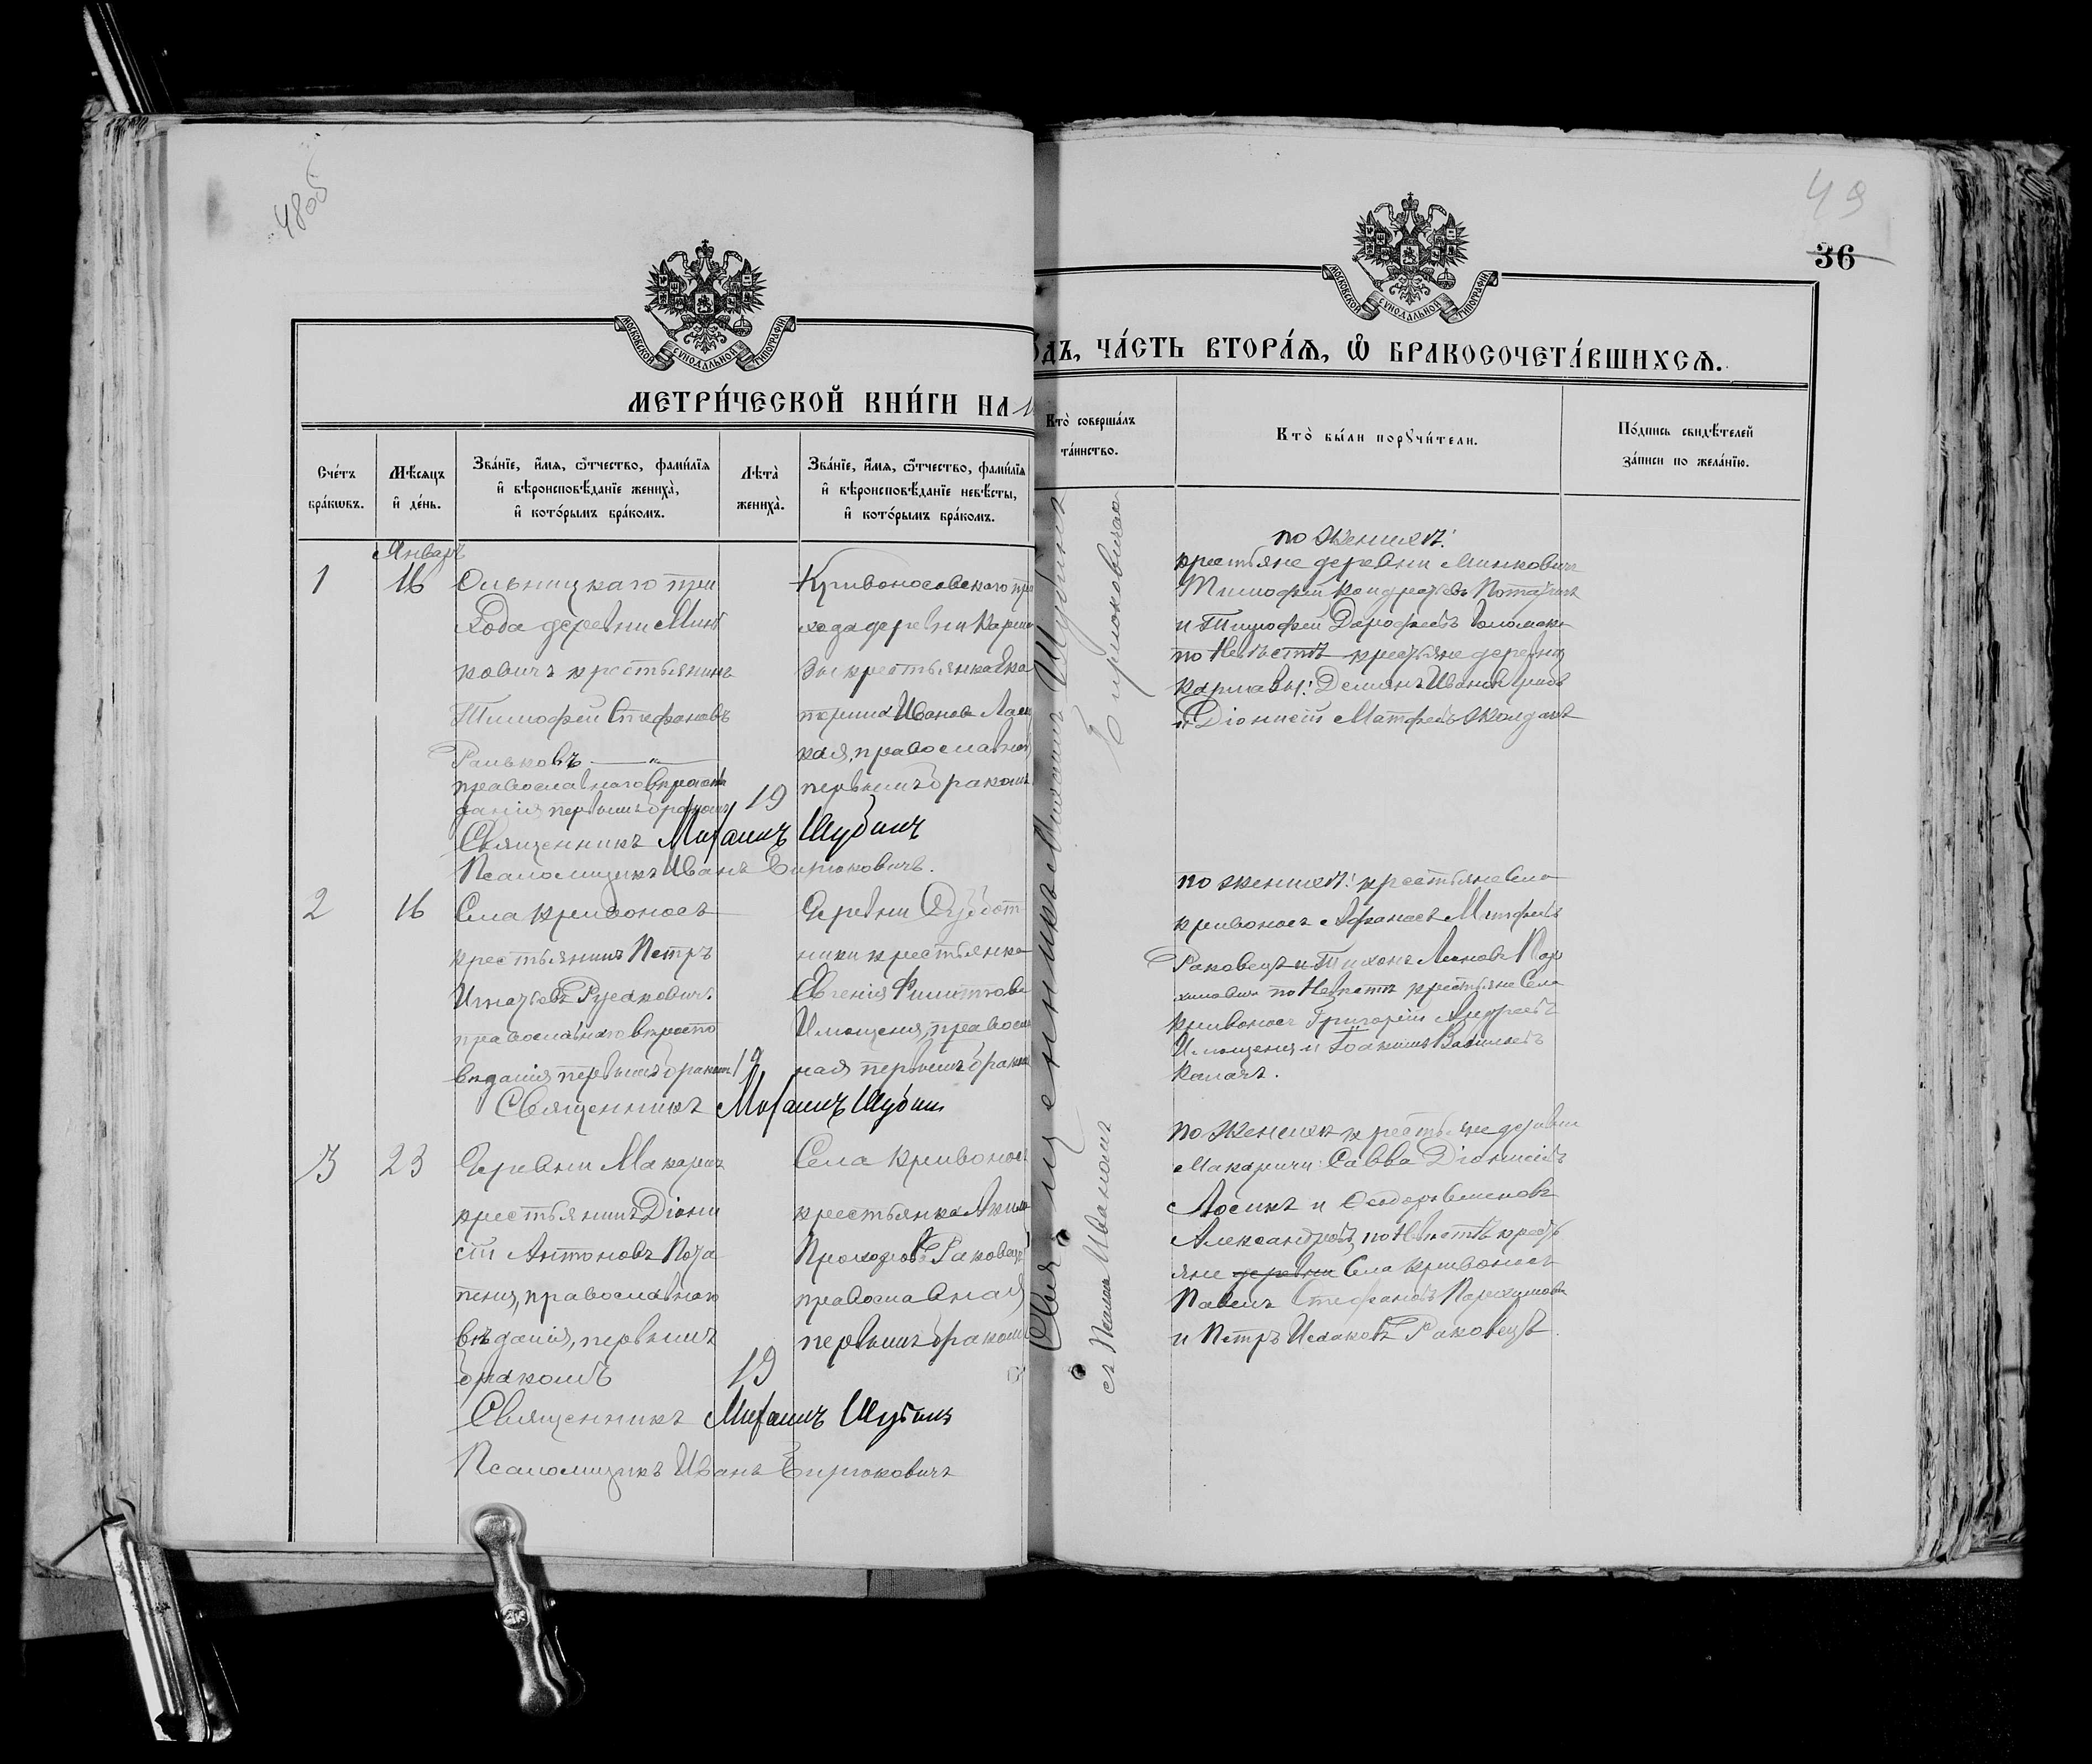 48об
МОСКОВСКОЙ СѴНОДАЛЬНОЙ ТИПОГРАФІИ
МЕТРИ́ЧЕСКОЙ КНИ́ГИ НА
Сче́тъ бра́кѡвъ.
Мѣ́сяцъ и҆ де́нь.
Зва́нїе, и҆́мѧ, ѻ҆́тчество, фами́лїѧ
и҆ вѣроисповѣ́данїе жениха̀,
и҆ кото́рымъ бра́комъ.
Лѣта̀ жениха̀.
Зва́нїе, и҆́мѧ, ѻ҆́тчество, фами́лїѧ
и҆ вѣроисповѣ́данїе невѣ́сты,
и҆ кото́рымъ бра́комъ.
Январь
1
16
при
хода деревни Мин
ковичъ крестьянинъ
Тимофей Стефановъ
Раньковъ
православнаго вѣроиспове
данія первымъ бракомъ
19
Кривоносовскаго при
хода деревни Карша
вы крестьянка Ека
терина Иванова
кая, православная
первымъ бракомъ
Священникъ Михаилъ Шубинъ
Псаломщикъ Иванъ Бирюковичъ.
2
16
Села Кривоносъ
крестьянинъ Петръ
Игнатьевъ Русаковичъ.
православнаго вѣроиспо
вѣданія первымъ бракомъ
19
Деревни Суббот
ники крестьянка
Евгенія Филиппова
ная первымъ бракомъ
Священникъ Михаилъ Шубинъ
3
23
Деревни Макаричъ
крестьянинъ Діони
сій Антоновъ Пота
пеня, православнаго
вѣданія, первымъ
бракомъ
19
Села Кривоносъ
крестьянка
Раковецъ
православная
первымъ бракомъ
Священникъ Михаилъ Шубинъ
Псаломщикъ Иванъ Бирюковичъ
49
36
МОСКОВСКОЙ СѴНОДАЛЬНОЙ ТИПОГРАФІИ
ДЪ, ЧА́СТЬ ВТОРА́Ѧ, Ѽ БРАКОСОЧЕТА́ВШИХСѦ.
Кто̀ соверша́лъ
та́инство.
Кто̀ бы́ли порꙋчи́тели.
По́дпись свидѣ́телей
за́писи по жела́нїю.
Священникъ Михаилъ Шубинъ
съ Псалом Иваномъ Бирюковичемъ
по женихѣ:
крестьяне деревни Минковичъ
Тимофей Кондратьевъ
и Тимофей Дорофеевъ
по Невѣстѣ крестьяне деревни
Каршавы: Демьянъ Ивановъ
и Діонисій Матфеевъ
по женихѣ: крестьяне Села
Кривоносъ Афанасій
Раковецъ и Тихонъ
по Невѣстѣ крестьяне Села
Кривоносъ Григорій Андреевъ
и Іоакимъ Васильевъ
Калачъ.
по Женихѣ крестьяне деревни
Макаричи: Савва Діонисіевъ
Лосикъ и Ѳеодоръ Семеновъ
по Невѣстѣ кресть
яне деревни Села Кривоносъ
Павелъ Стефановъ
и Петръ Исааковъ Раковецъ.